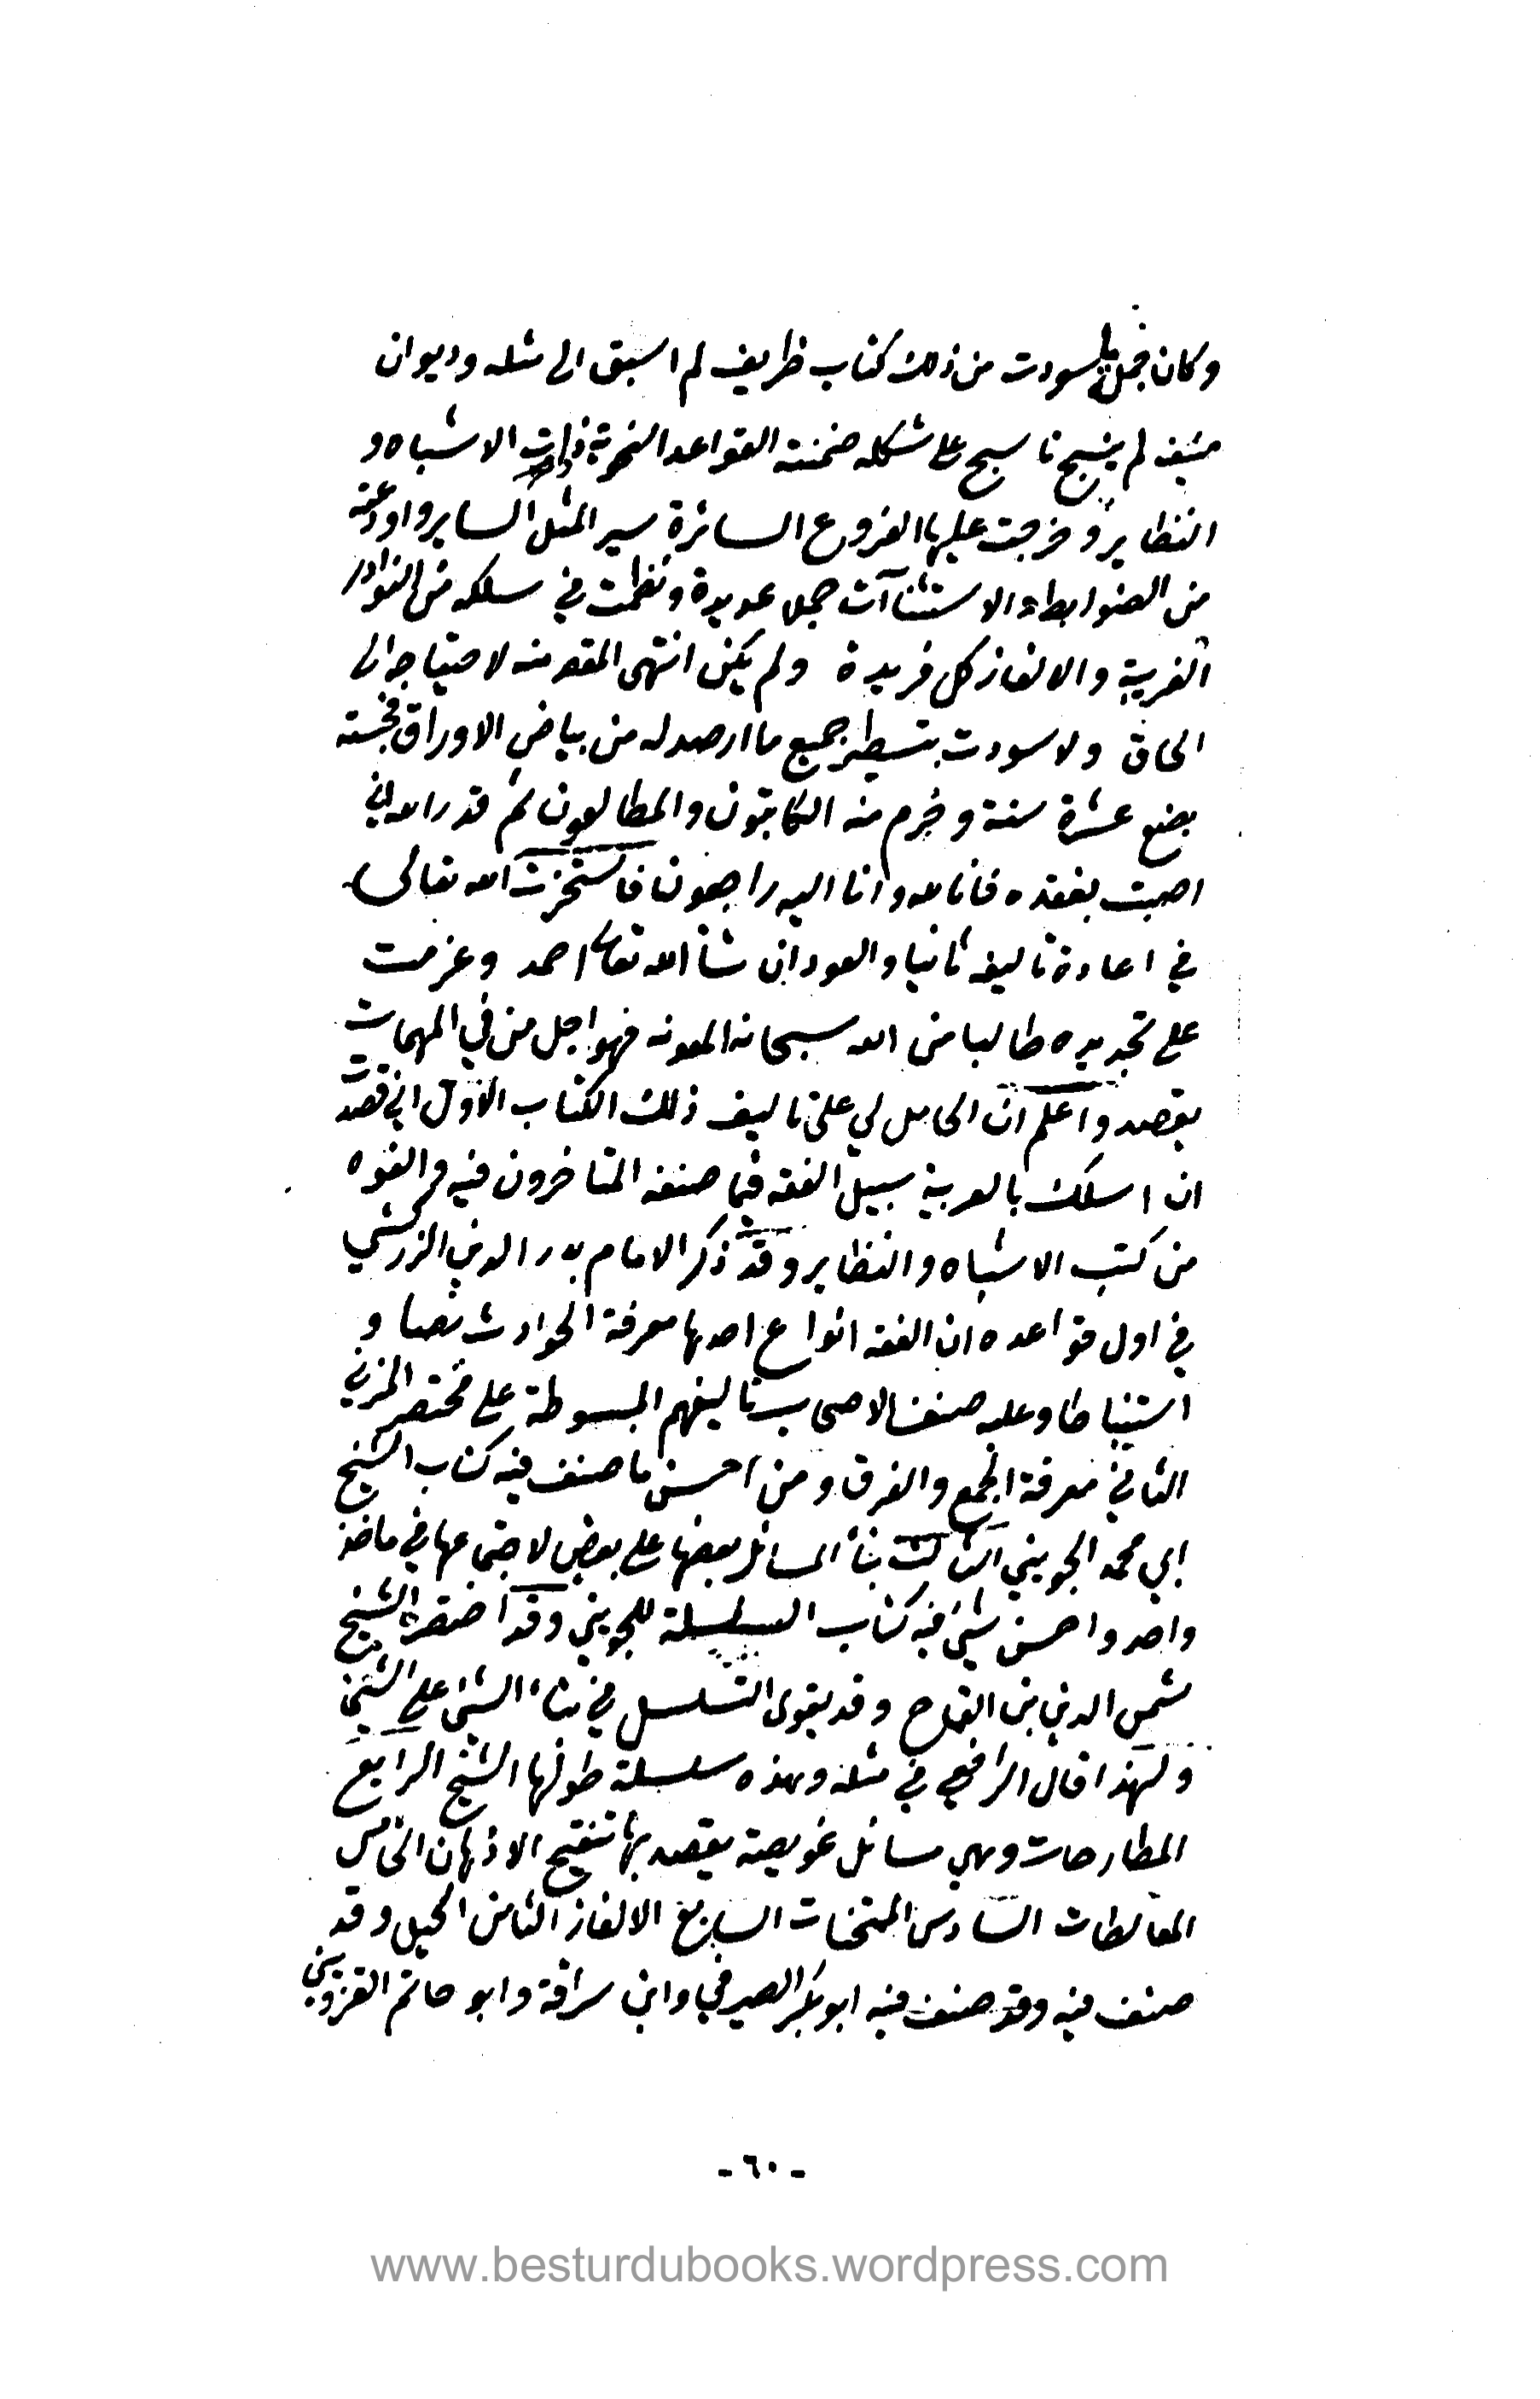 وكان مما سودت من ذلك كتاب ظريف لم اسبق الى مثله وديوان
منيف لم ينسج ناسج على شكله ضمنته القواعد النحوية ذوات الاشباه و
النظاير وخرجت عليها الفروع السائرة سير المثل الساير واودعته
من الضوابط والاستثناآت جملا عديدة ونظمت في سلكه من النوادر
الغريبة والالغاز كل فريدة ولم يكن انتهى المقصد منه لاحتياجه الى
الحاق ولا سودت بتسطير جميع ما ارصد له من بياض الاوراق فحبسته
بضع عشرة سنة وحرم منه الكاتبون والمطالعون ثم قدر الله اني
اصبت بفقده فانا لله وانا اليه راجعون فاستخرت الله تعالى
في اعادة تاليفه ثانيا والعود ان شاْ الله تعالى احمد وعزمت
على تجديده طالبا من الله سبحانه المعونه فهو اجل من في المهمات
يقصد واعلم ان الحامل لي على تاليف ذلك الكتاب الاول اني قصدت
ان اسلك بالعربية سبيل الفقه فيما صنفه المتاخرون فيه والفوه
من كتب الاشباه والنظاير وقد ذكر الامام بدر الدين الزركشي
في اول قواعده ان الفقه انواع احدها معرفة الحوادث نصا و
استنباطا وعليه صنف الاصحاب تاليفهم المبسوطة على مختصر المزني
الثاني معرفة الجمع والفرق ومن احسن ما صنف فيه كتاب الشيخ
ابي محمد الجويني الثالث بناْ المسائل بعضها على بعض لاجتماعها في ماخذ
واحد واحسن شيئ فيه كتاب السلسلة للجويني وقد اختصره الشيخ
شمس الدين بن القماح وقد يقوى التسلسل في بناء الشئ على الشئ
ولهذا قال الرافعي في مثله وهذه سلسلة طولها الشيخ الرابع
المطارحات وهي مسائل عويصة يقصد بها تنقيح الاذهان الخامس
المغالطات السادس الممتحنات السابع الالغاز الثامن الحيل وقد
صنف فيه وقد صنف فيه ابو بكر الصيرفي وابن سراقة وابو حاتم القزويني
-٦٠-
www.besturdubooks.wordpress.com